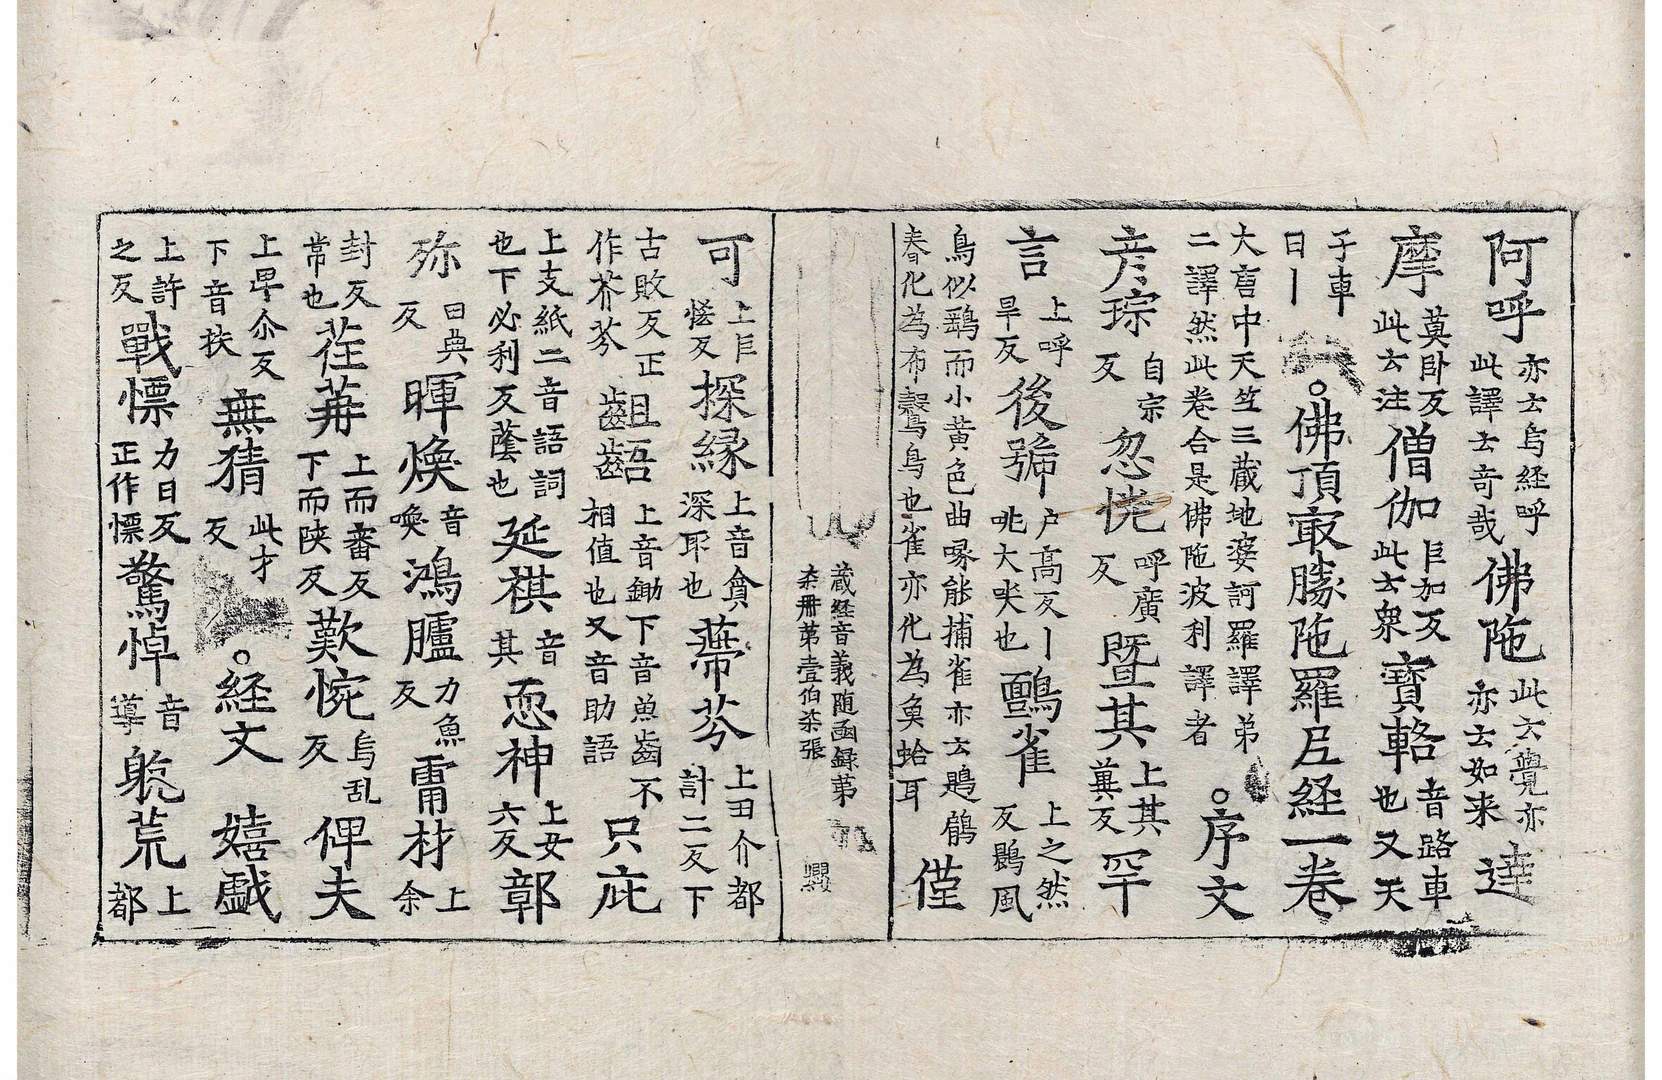 阿呼亦云烏経呼此譯云奇㢤佛陁此云覺亦亦云如来達
摩莫卧反此云注僧伽巨加反此云衆寶輅音路車也又天
子車曰丨。佛頂㝡勝陁羅尼経一卷
大唐中天竺三藏地婆訶羅譯弟二譯然此卷合是佛陁波利譯者。序文
彦琮自宗反忽恍呼廣反曁其上其兾反罕
言上呼旱反後號户髙反丨咷大㗛也鸓雀上之然反鷐風
鳥似鷂而小黄色曲喙能捕雀亦云鶗鵳春化為布糓鳥也雀亦化為魚蛤耳僅
藏経音義随函録第柒冊第壹伯柒張
可上巨愘反探縁上音貪深取也蔕芬上田介都計二反下
古敗反正作芥芥齟齬上音鋤下音魚齒不相值也又音助語只庇
上支紙二音語詞也下必利反䕃也延祺音其恧神上女六反鄣
殄田典反暉煥音喚鴻臚力魚反霌材上余
封反常也荏苒上而審反下而陕反歎惋烏乱反俾夫
上卑尒反下音扶無猜此才反。経文嬉戯
上許之反戰慄力日反正作慄驚悼音導躭荒上都